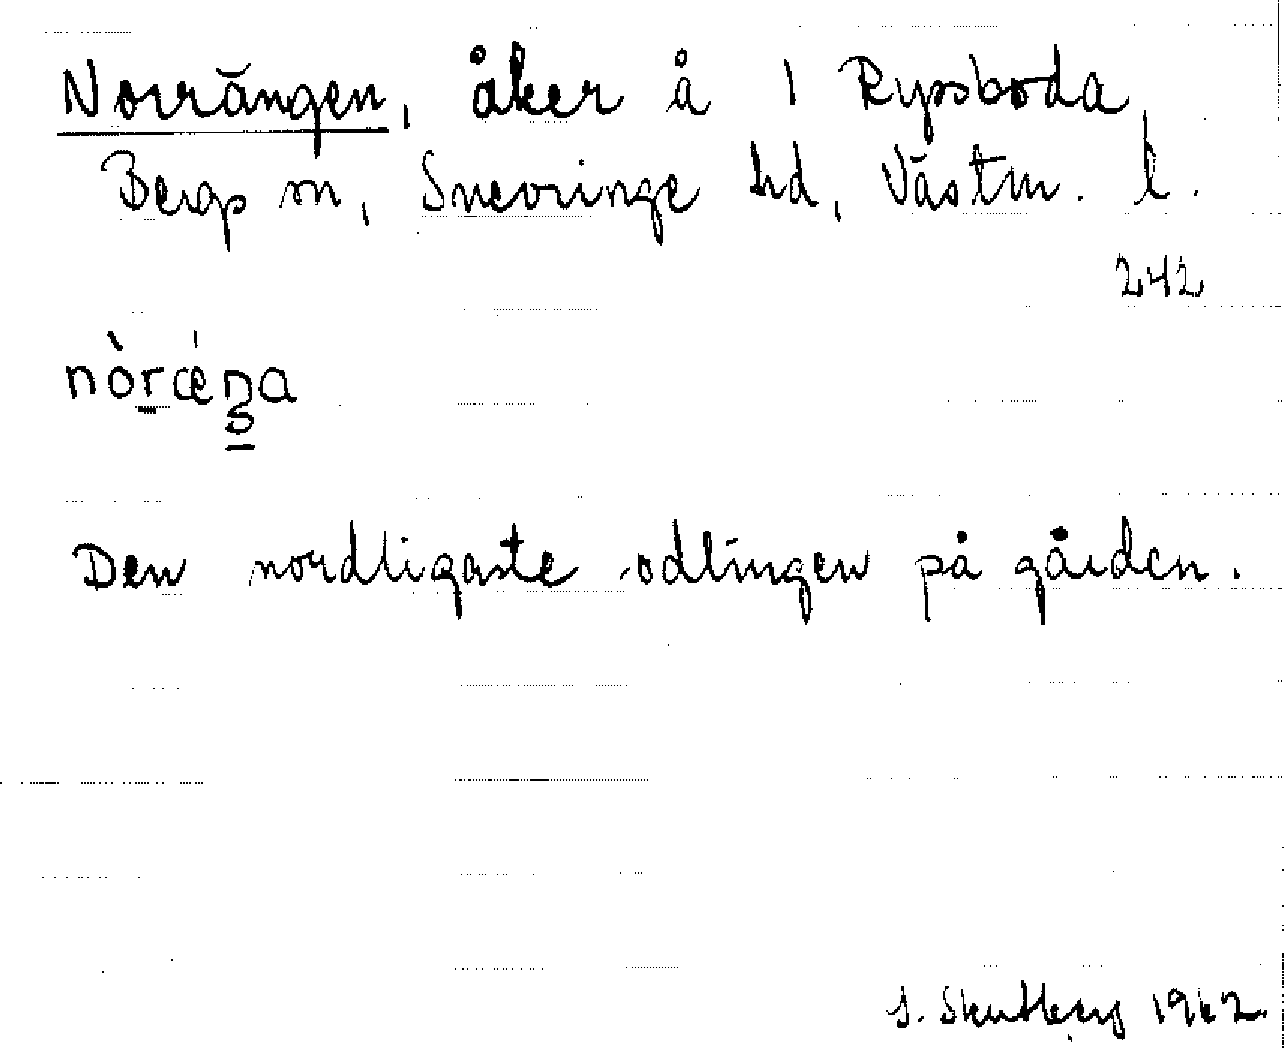 Norrängen, åker å 1 Rypsboda,
Bergs sn, Snevringe hd, Västm. l.
242
nòrǽŋa
Den nordligaste odlingen på gården.
S. Skutberg 1962.